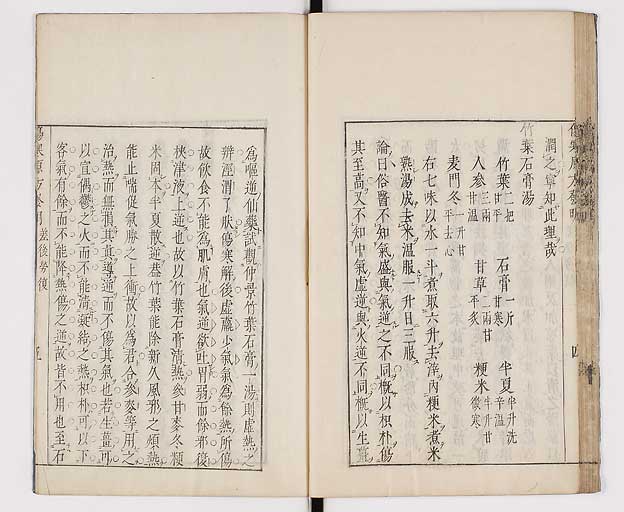 潤之、寧知此理哉
竹葉石膏湯
竹葉二把甘平 石膏一斤甘寒 半夏半升洗辛溫
人參三兩甘溫 甘草二兩甘平炙 粳米半升甘微寒
麥門冬一升甘平去心
右七味以水一斗煮取六升去滓內粳米煮米
熟湯成去米溫服一升日三服
論曰俗醫不知氣盛與氣逆之不同概以枳朴傷
其至高又不知中氣虛逆與火逆不同概以生薑
為嘔逆仙藥試觀仲景竹葉石膏一湯則虛熱之
辨涇渭了狀傷寒解後虛羸少氣氣為餘熱所傷
故飲食不能為肌膚也氣逆欲吐胃弱而餘邪復
挾津液上逆也故以竹葉石膏清熱參甘麥冬粳
米固本半夏散逆蓋竹葉能除新久風邪之煩熱
能止喘促氣勝之上衝故以為君合參麥等用之
治熱而無損其真導逆而不傷其氣也若生薑可
以宣偶鬱之火而不能清凝結之熱枳朴可以下
客氣有餘而不能降熱傷之逆故皆不用也至石
差後勞復